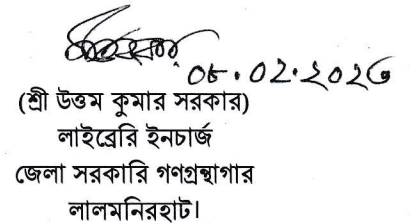 ০৮.০২.২০২৬
(শ্রী উত্তম কুমার সরকার)
লাইব্রেরি ইনচার্জ
জেলা সরকারি গণগ্রন্থাগার
লালমনিরহাট।